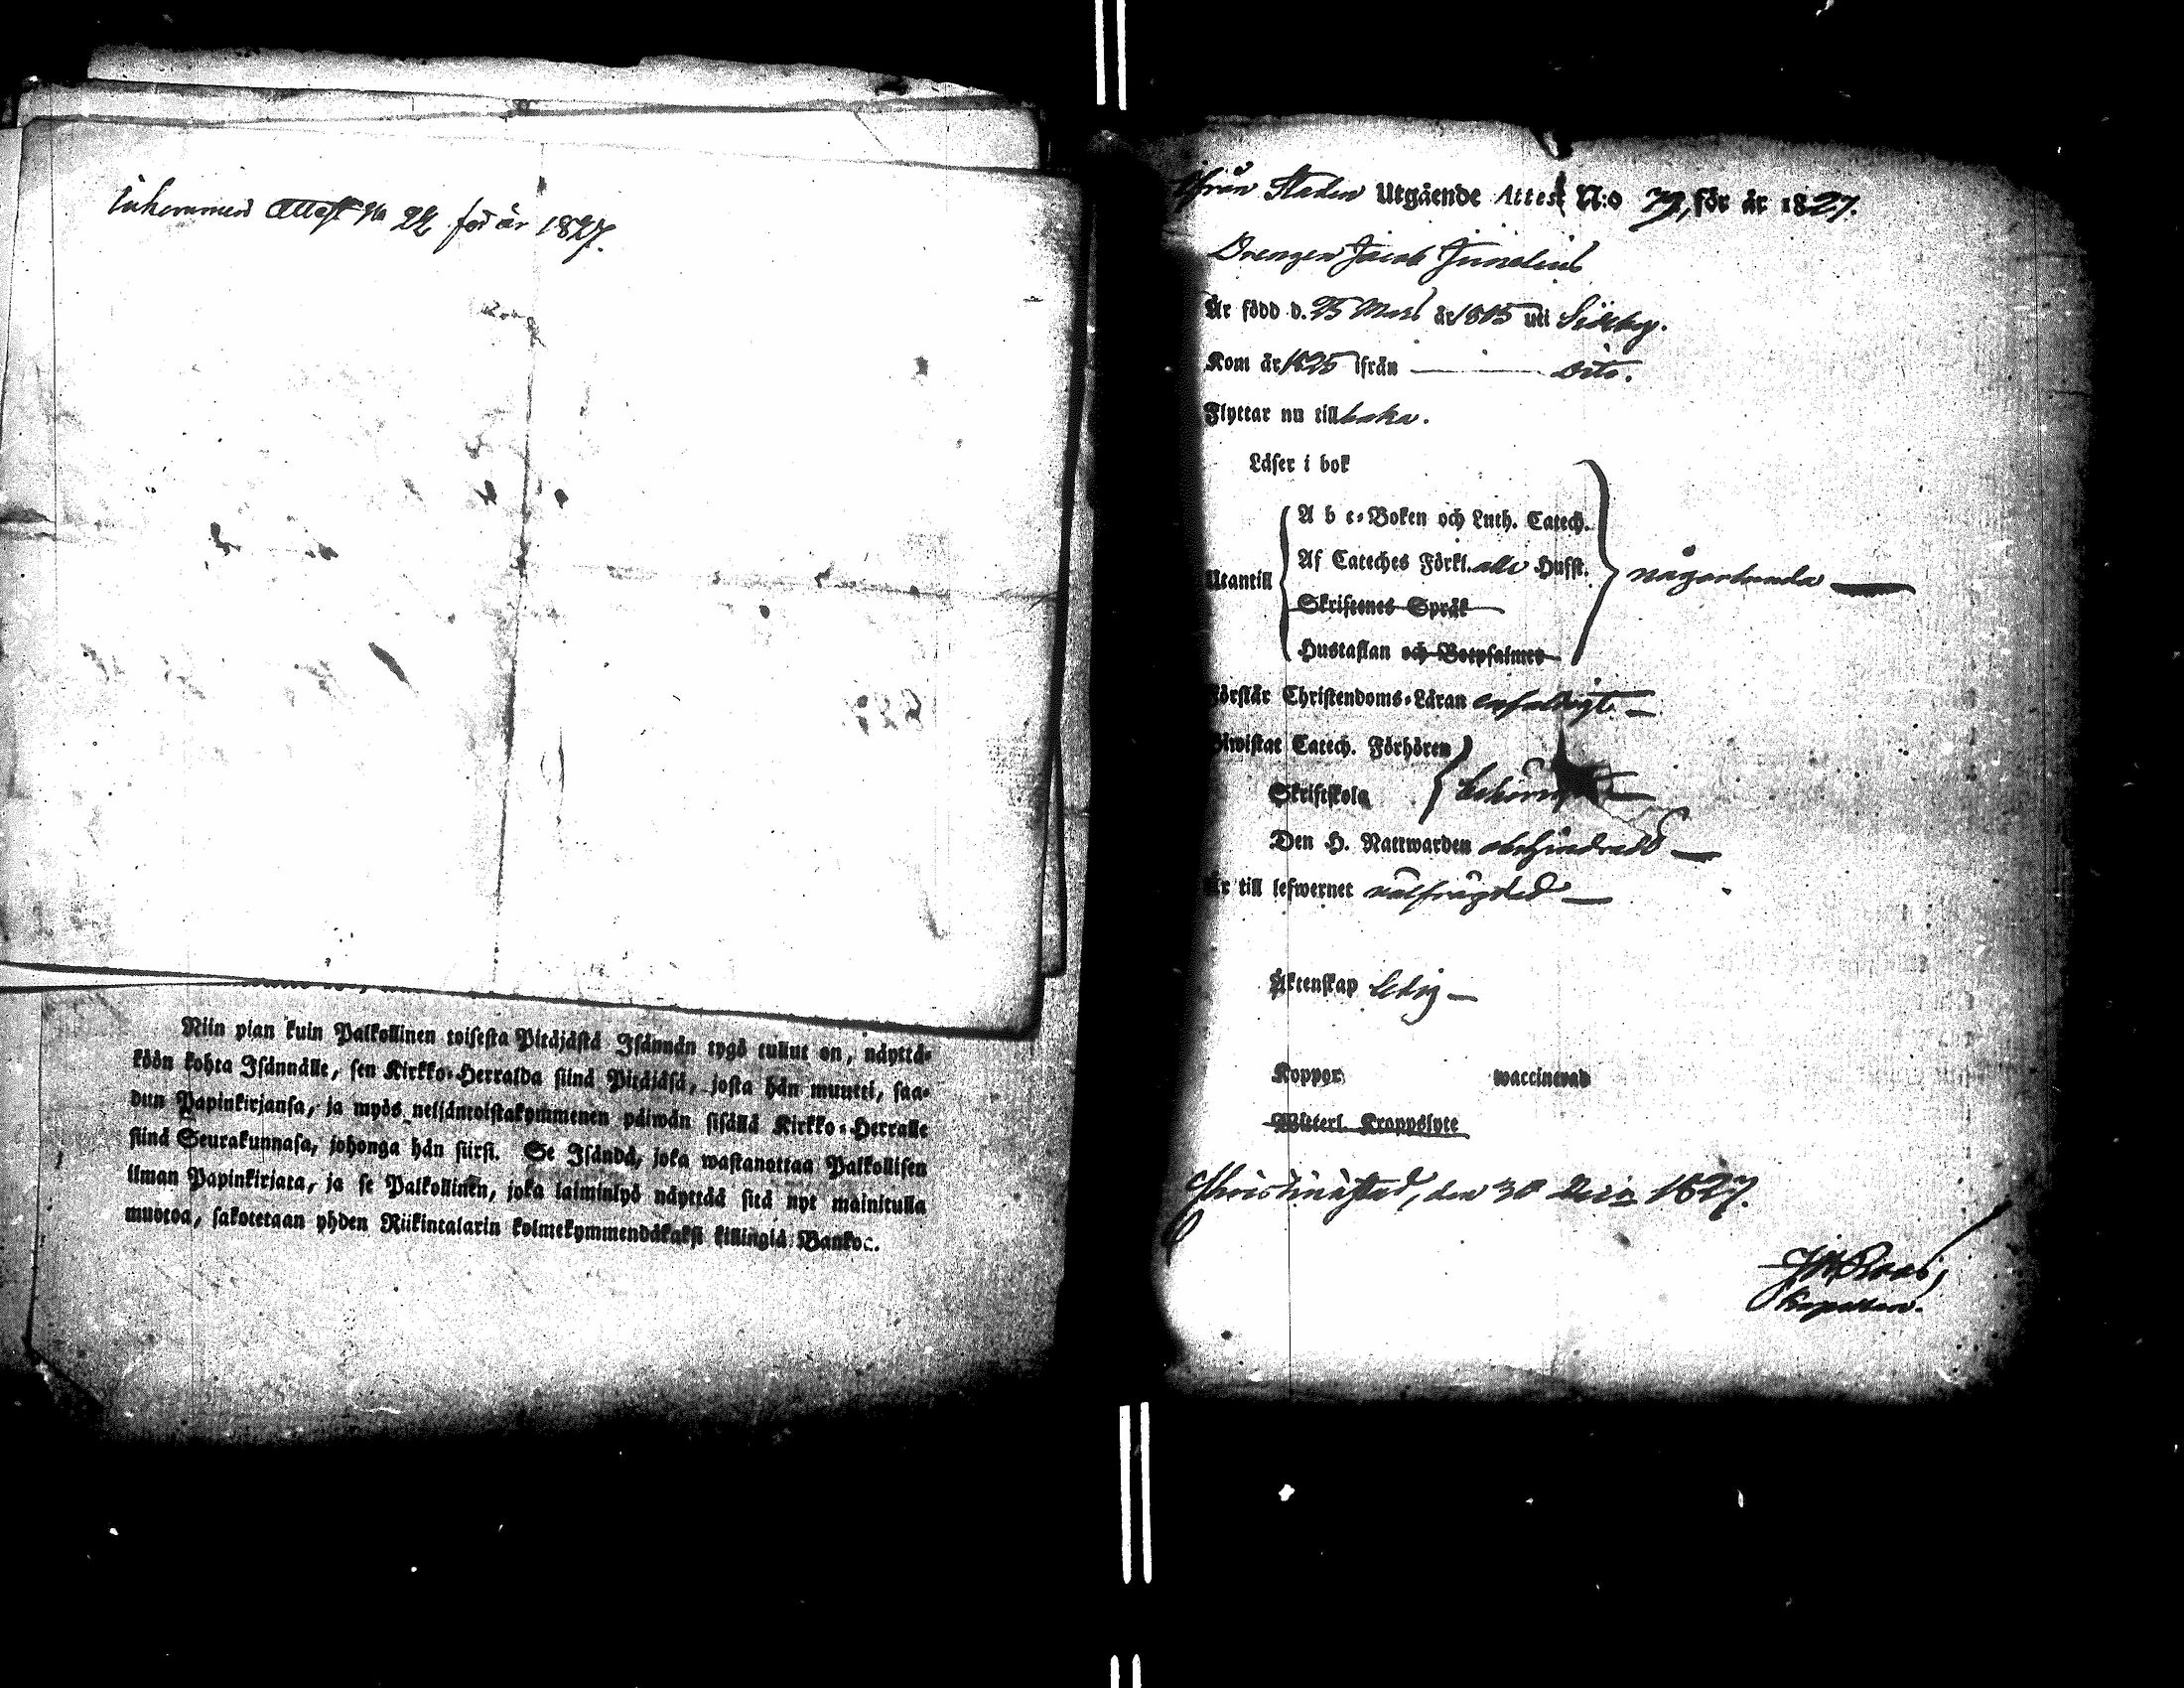 Inkommen Attest No 22 för år 1827.
Niin pian kuin Palkollinen toisesta Pitäjästä Isännän tygö tullut on, näyttä-
köön kohta Isännälle, sen Kirkko-Herralda siinä Pitäjäsä, josta hän muutti, saa-
dun Papinkirjansa, ja myös neljäntoistakymmenen päiwän sisällä Kirkko-Herralle
siinä Seurakunnasa, johonga hän siirsi. Se Isändä, joka wastanottaa Palkollisen
ilman Papinkirjata, ja se Palkollinen, joka laiminlyö näyttää sitä nyt mainitulla
muotoa, sakotetaan yhden Riikintalarin kolmekymmendäkaksi killingiä Bankos.
ifrån Staden Utgående Attest N:o 79, för år 1827.
Drengen Jacob
Är född d. 25 Mars år 1805 uti Sideby.
Kom år 1825 ifrån — dito.
Flyttar nu tillbaka.
Läser i bok
A b c-Boken och Luth. Catech.
Af Cateches Förkl. alla Husst.
Utantill någorlunda —
Skriftenes Språk
Hustaflan och Botpsalmer
Förstår Christendoms-Läran enfaldigt —
Biwistat Catech. Förhören
Skriftskola
Den H. Nattwarden obehindrad —
Är till lefwernet välfrägdad —
Äktenskap ledig —
Koppor waccinerad
Witterl. Kroppslyte
Christinæstad, den 30 1827.